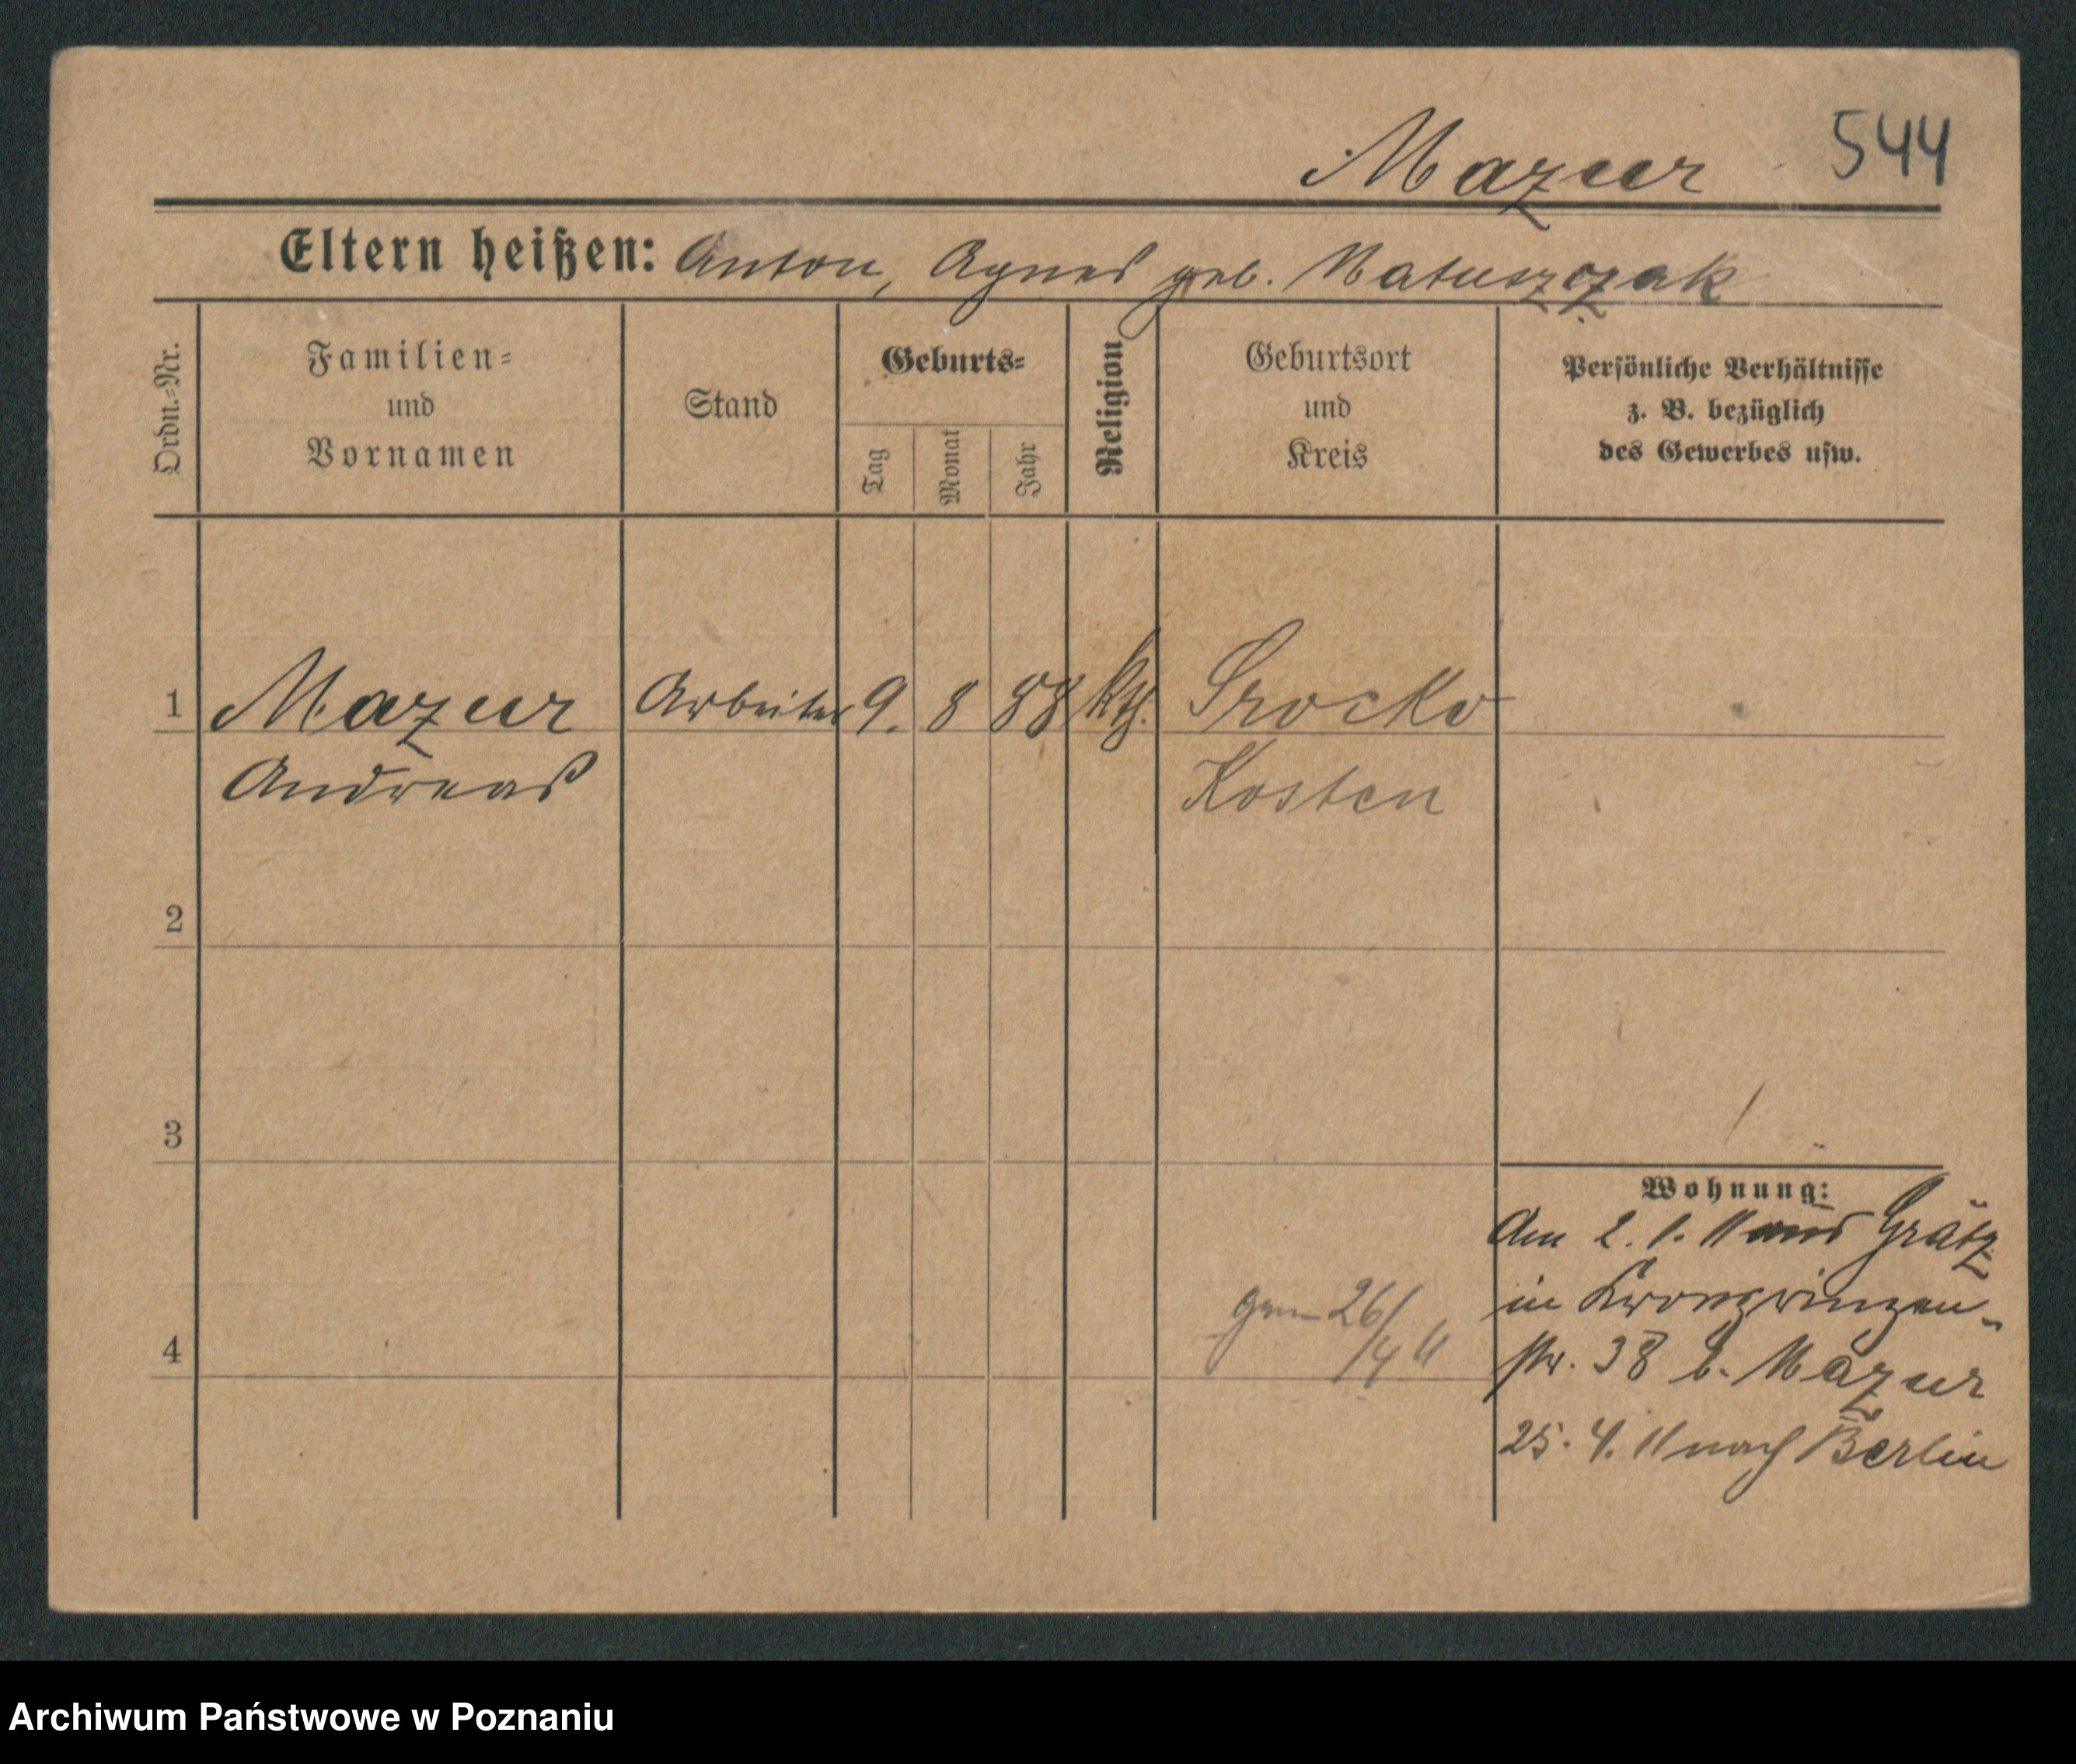 Mazur 544
Eltern heißen: Anton, Agnes geb. Matuszczak
Ordn.-Nr.
Familien-
und
Vornamen
Stand
Geburts-
Tag
Monat
Jahr
Religion
Geburtsort
und
Kreis
Persönliche Verhältnisse
z. B. bezüglich
des Gewerbes usw.
1 Mazur Arbeiter 9. 8 88 kth. Srocko
Andreas Kosten
2
3
Wohnung:
Am 2. 1. 11 aus Grätz
in Kronprinzen-
gem 26/4 11
4
str. 38 b. Mazur
25. 4. 11 nach Berlin
Archiwum Państwowe w Poznaniu